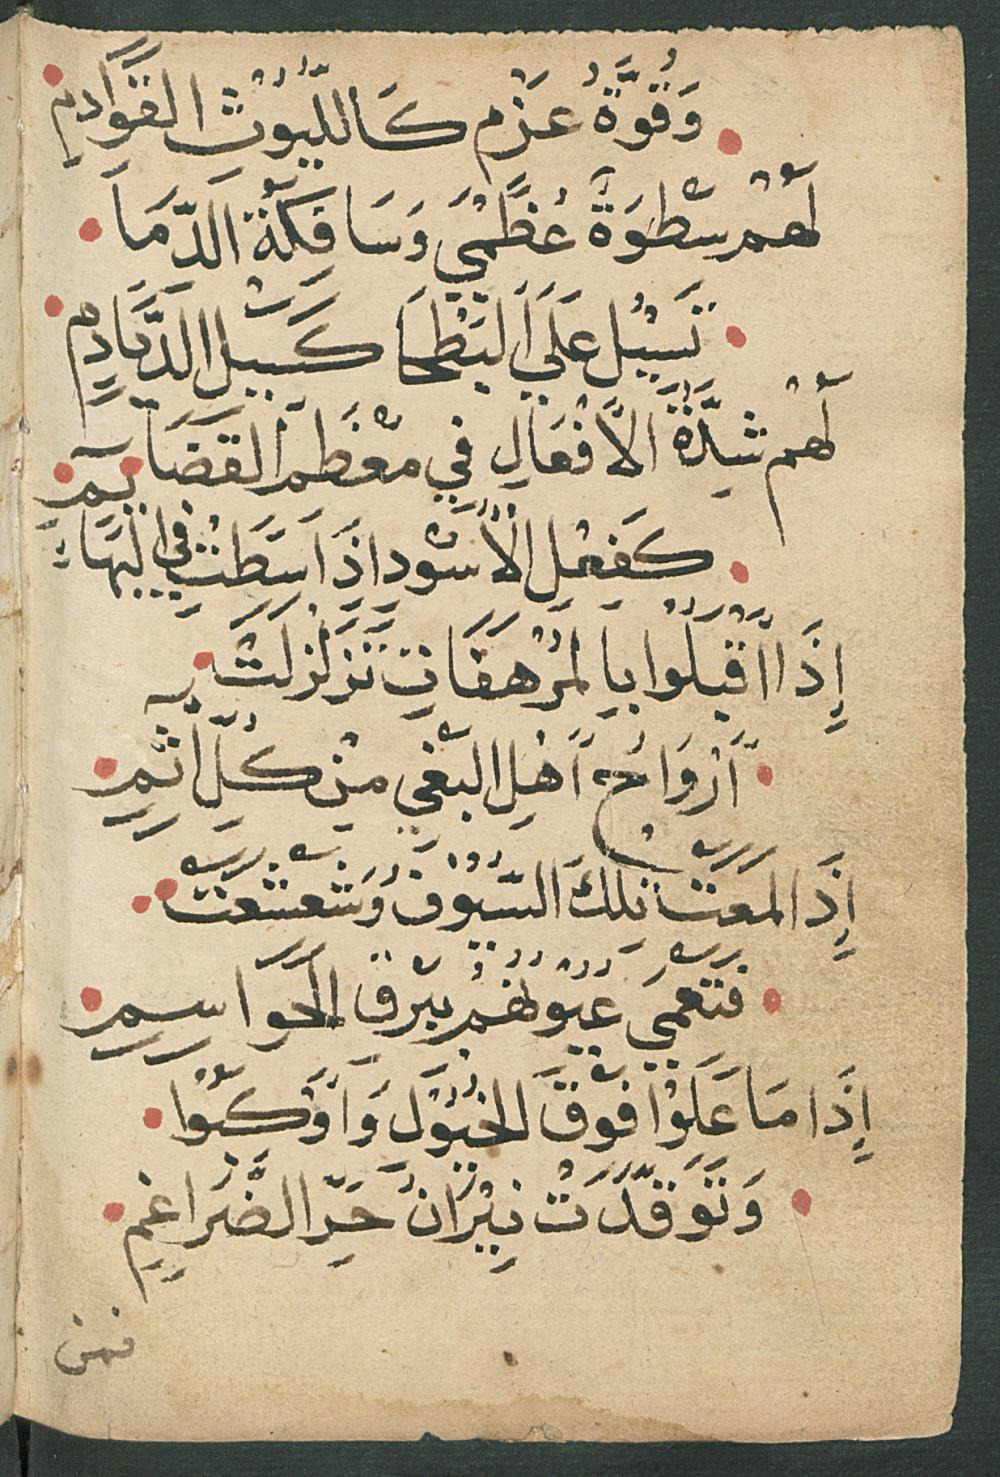 وَقُوَّةُ عَزْمٍ كَاللُّيُوْثِ الْقَوَادِمِ
لَهُمْ سَطْوَةٌ عُظْمَى وَسَافِكَةُ الدِّمَا
تَسِيْلُ عَلَى الْبَطْحَا كَسَيْلِ الدَّيَادِمِ
لَهُمْ شِدَّةُ الْأَفْعَالِ فِي مَعْظَمِ الْقَضَا
كَفِعْلِ الْأُسُوْدِ إِذَا سَطَتْ فِي الْبَهَايِمِ
إِذَا أَقْبَلُوا بِالْمُرْهَفَاتِ تَزَلْزَلَتْ
أَرْوَاحُ أَهْلِ الْبَغْيِ مِنْ كُلِّ آثِمِ
إِذَا لَمَعَتْ تِلْكَ السُّيُوْفُ وَشَعْشَعَتْ
فَتَعْمَى عُيُوْنُهُمْ بِبَرْقِ الْحَوَاسِمِ
إِذَا مَا عَلَوْا فَوْقَ الْخُيُوْلِ وَأَوْكَبُوا
وَتَوَقَّدَتْ نِيْرَانُ حَرِّ الضَّرَاغِمِ
فمن